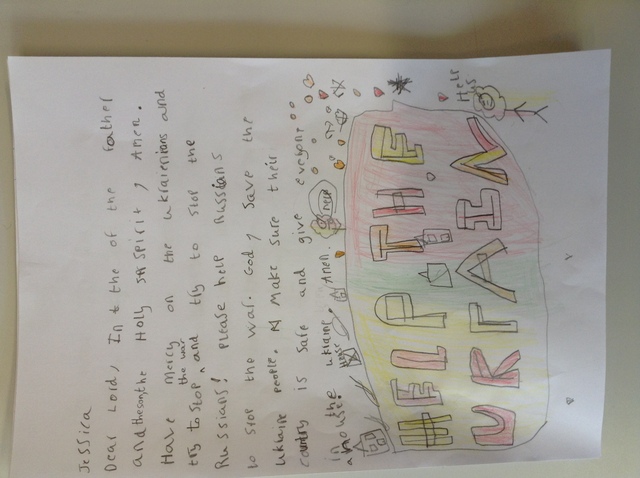 Jessica
Dear Lord, In t the of the Father
and the son the Holy spirit, Amen.
Have mercy on the ukrainians and
the war
try to stop and try to stop the
Russians! Please help Russians
to stop the war. God, save the
ukraine people. Make sure their
country is safe and give everyone
in the ukraine Amen.
a house.
house
Help
HELP THE
UKRAIN
Help
Us